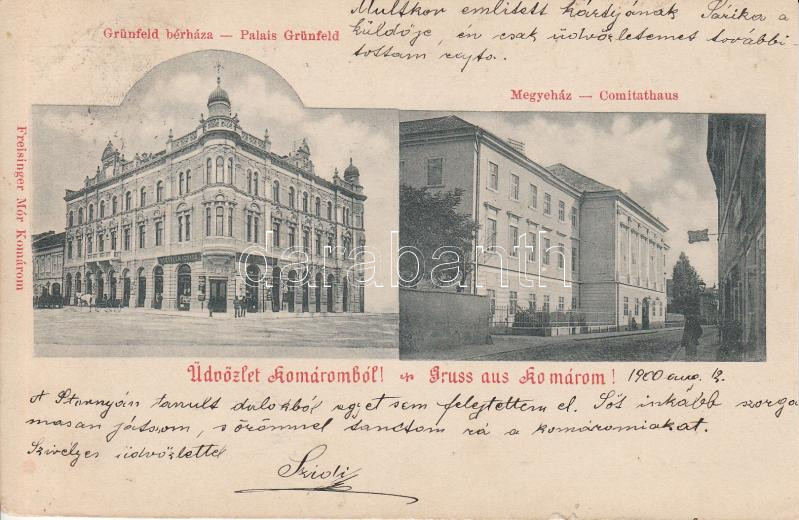 Multkor említett kártyának Sárika a
küldője, én csak üdvözletemet továbbí-
tottam rajta.
Grünfeld bérháza — Palais Grünfeld
Megyeház — Comitathaus
Freisinger Mór Komárom
darabanth
Üdvözlet Komáromból! Gruss aus Komárom! 1900 aug. 12.
A tanult dalokból egyet sem felejtettem el. Sőt inkább szorga
masan játszom, s örömmel tanítom rá a komáromiakat.
Szívélyes üdvözlettel
Szidi